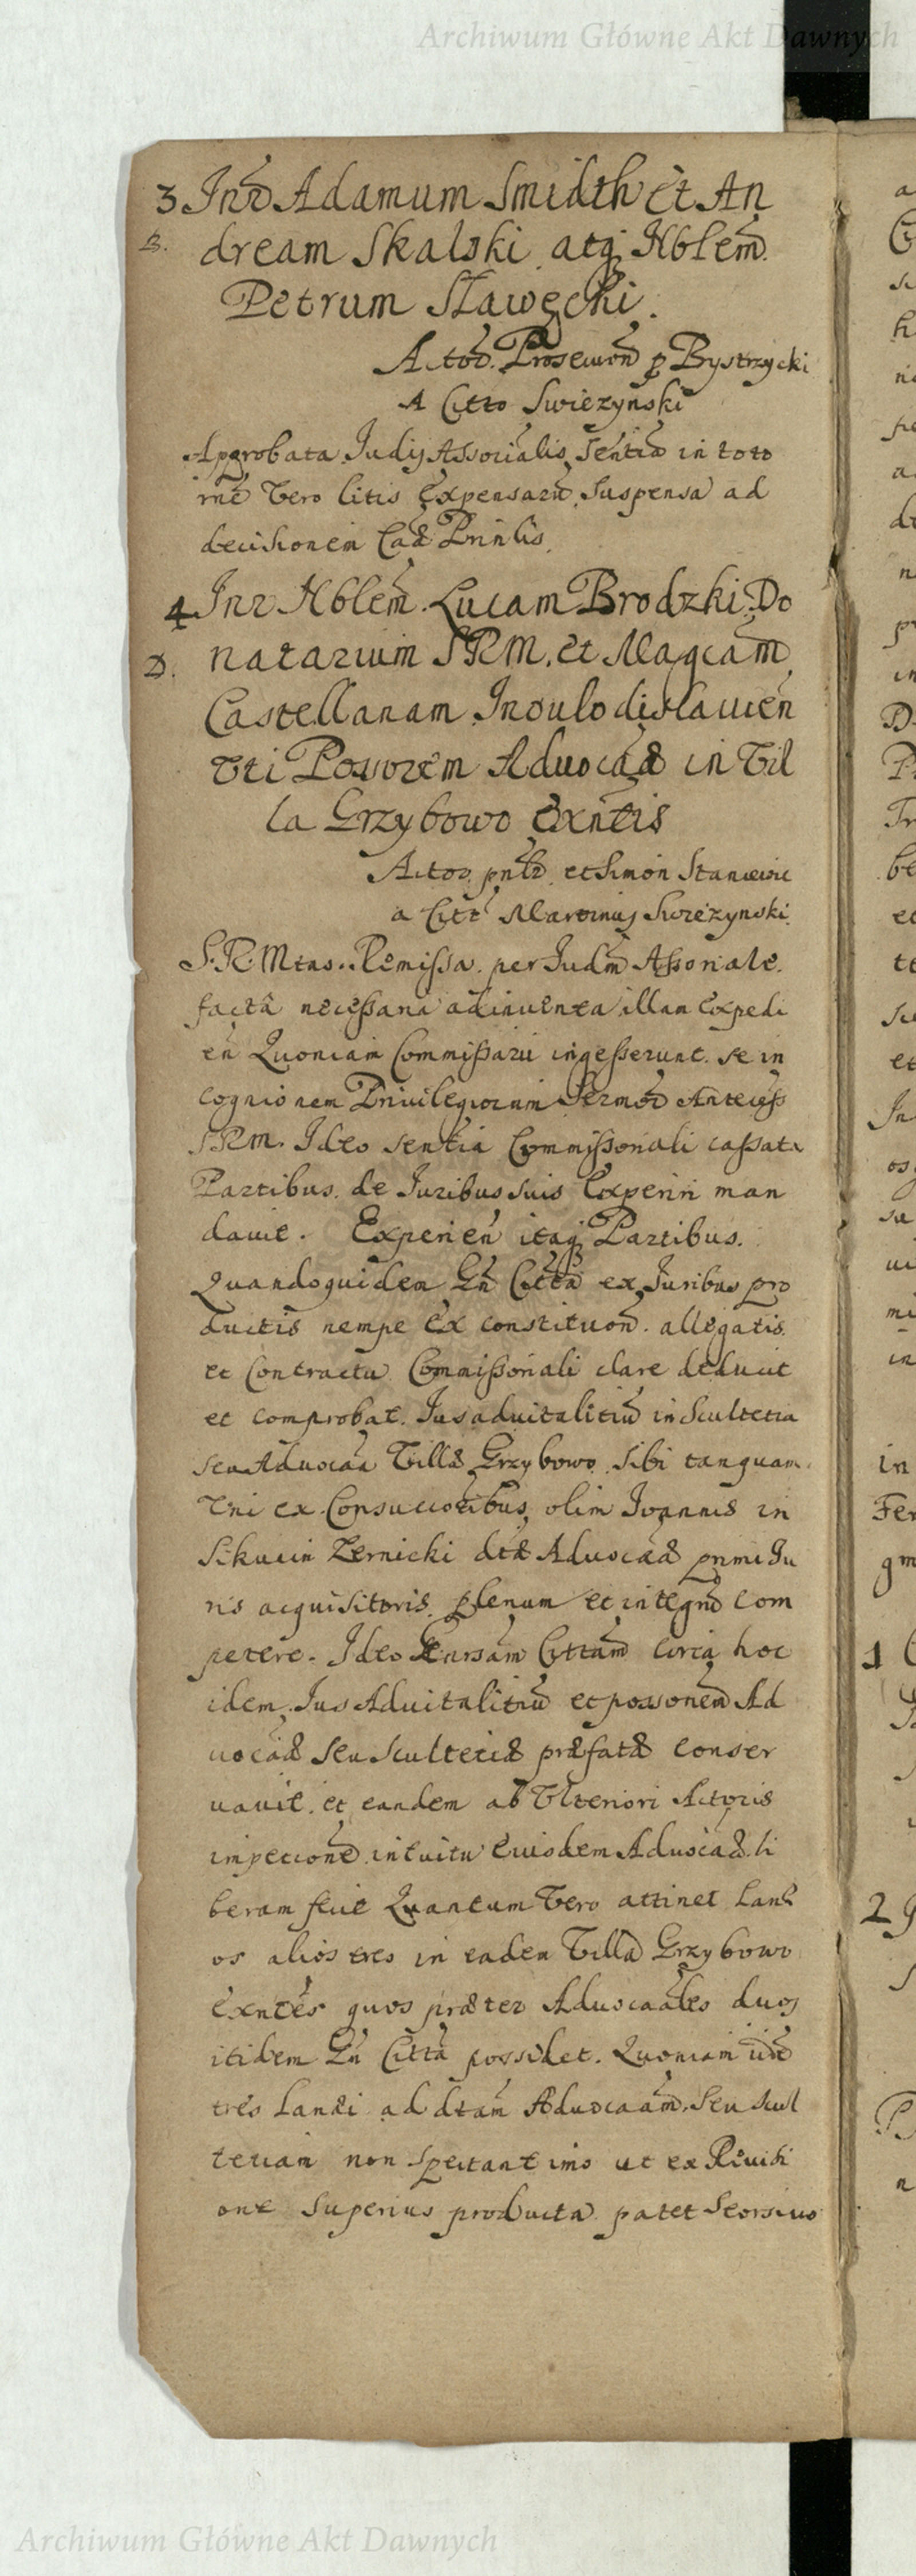 Archiwum Główne Akt Dawnych
3 Inr̃ Adamum Smidth Et An
B. dream Skalski atq̃ Nblem̃
Petrum Sławęcki.
Actoõ. Prosecuoñ p Bystrzycki
A Citto Swiezynski
Approbata Judij Assorialis Senti͠a in toto
rne͠ Vero litis Expensaru͠ Suspensa ad
decisionem Ca͠æ Prin͠lis.
4 Inr Nblem̃. Lucam Brodzki Do
D. natarium SRM. et Magca͠m
Castellanam Inoulodislauien͠
Vti Possorem Aduoca͠æ in Vil
la Grzybowo Exn͠tis
Actor pnt͠b. et Simon Staniewic
a Citt͠ Martinus Swiezynski.
S. R. Mtas. Remissa per Judm͠ Assoriale.
facta͠ necessaria adinuenta illam Expedi
en͠ Quoniam Commissarii ingesserunt se in
cognionem Priuilegiorum Sermor͠ Antecess͠
SRM. Ideo sentia Commissoriali cassata
Partibus de Juribus suis Experiri man
dauit. Experien͠ itaq̃ Partibus.
Quandoquidem Gn͠ Citta͠ ex Juribus pro
ductis nempe Ex constituon͠. allegatis
et Contractu Commissoriali clare deducit
et comprobat Jus aduitalitiu͠ in Scultetia
seu Aduocaa͠ Villæ Grzybowo sibi tanquam
Vni ex Consuccoribus olim Joannis in
Sikucin Zernicki dtæ Aduocaæ͠ primi Ju
ris acquisitoris plenum et integru͠ com
petere. Ideo Gnrsam͠ Cittam͠ circa hoc
idem Jus Aduitalitiu͠ et possonem͠ Ad
uocaæ͠ seu Scultetiæ præfatæ conser
uauit et eandem ab Vlteriori Actoris
impecione͠ intuitu Eiusdem Aduocaæ͠ li
beram fecit Quantum Vero attinet Lan͠
os alios tres in eadem Villa Grzybowo
Exntes͠ quos præter Aduocaales͠ duos
itidem Gn͠ Citta͠ possidet. Quoniam iidem͠
tres Lanei ad dtam͠ Aduocaam͠ Seu Scul
tetiam non spectant imo ut ex Reuisi
one superius producta patet Seorsiuo
Archiwum Główne Akt Dawnych